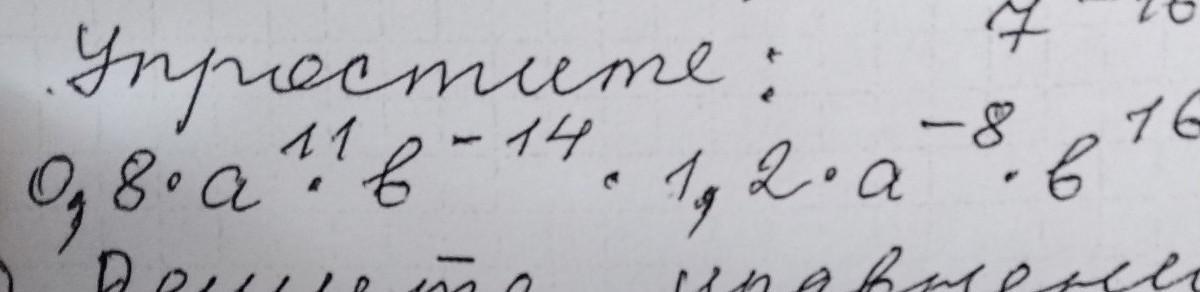 7^-16
Упростите:
0,8·a^11·b^-14·1,2·a^-8·b^16